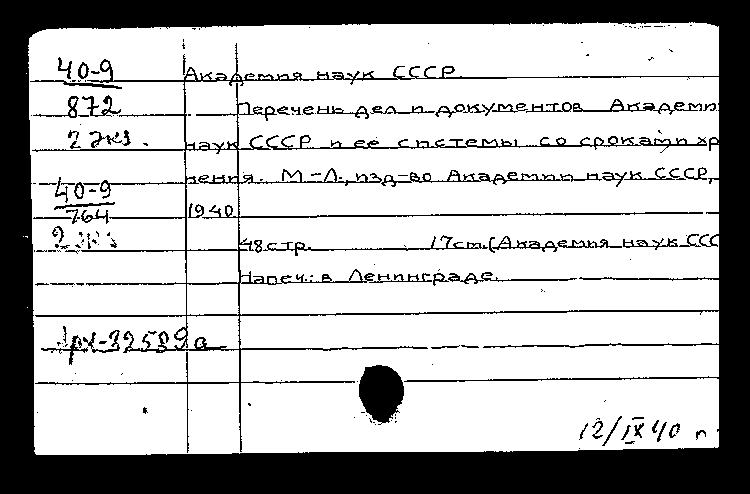 40-9
872
2 экз.
40-9
764
2 экз
Арх-32589а
Академия наук СССР.
Перечень дел и документов Академи
наук СССР и её системы со сроками хр
нения. М.-Л., изд-во Академии наук СССР,
1940
48стр. 17см.(Академия наук ССС
Напеч.: в Ленинграде.
12/IX 40 п